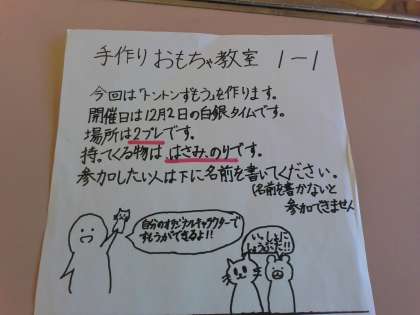 手作りおもちゃ教室 1-1
今回は「トントンずもう」を作ります。
開催日は12月2日の白銀タイムです。
場所は2プレです。
持ってくる物は はさみ、のりです。
参加したい人は下に名前を書いてください。
(名前を書かないと
参加できません
自分のオリジナルキャラクターで
すもうができるよ!!
いっしょに
しょうぶだ!!